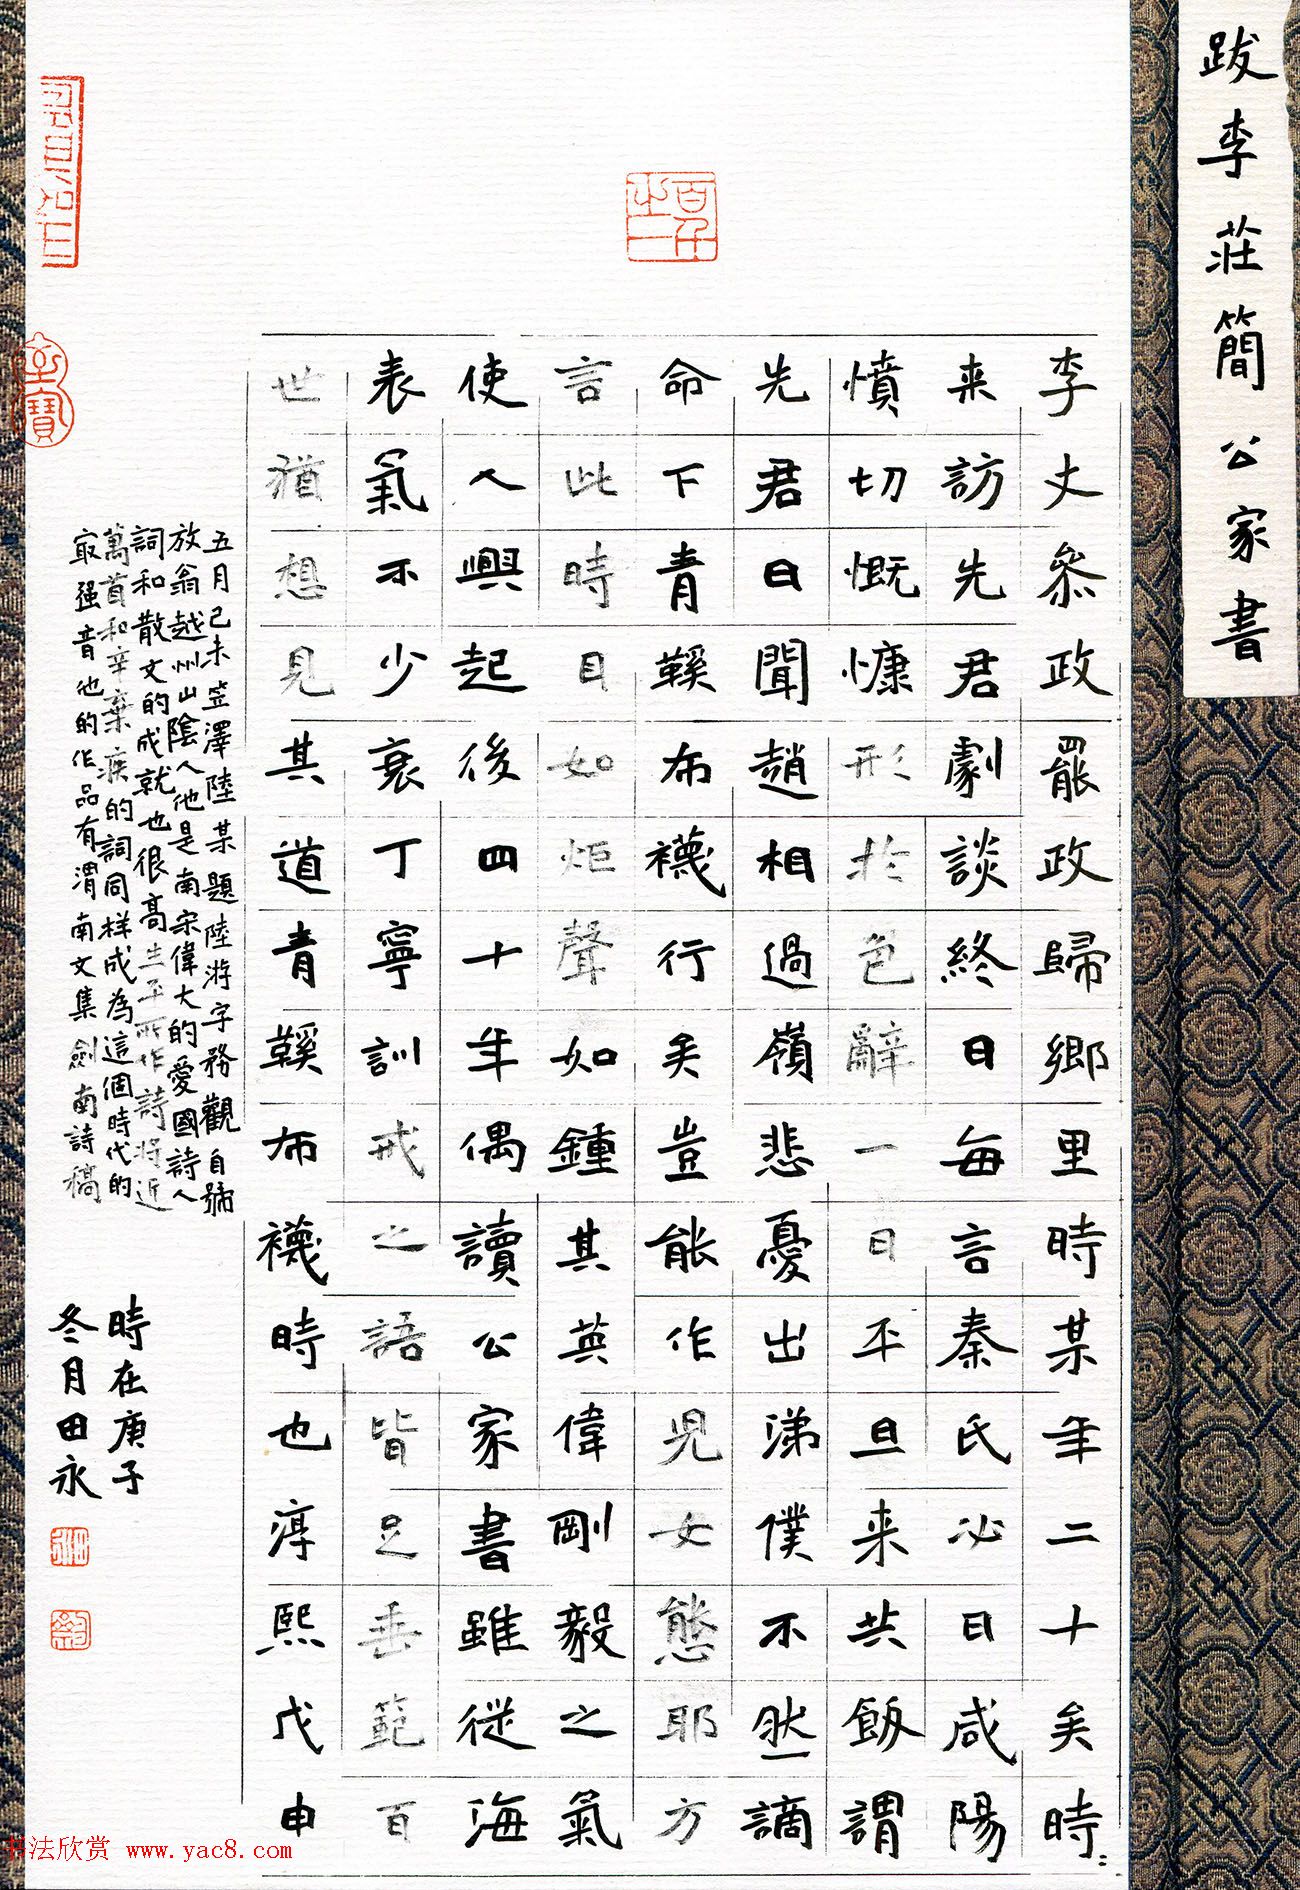 跋李莊簡公家書
李丈叅政罷政歸鄉里時某年二十矣時
来訪先君劇談終日每言秦氏必曰咸陽
憤切慨慷形於色辭一日平旦来共飯謂
先君曰聞趙相過嶺悲憂出涕僕不然謫
命下青鞵布襪行矣豈能作児女態耶方
言此時目如炬聲如鍾其英偉剛毅之氣
使人興起後四十年偶讀公家書雖從海
表氣不少衰丁寧訓戒之語皆足垂範百
世猶想見其道青鞵布襪時也淳熙戊申
五月己未笠澤陸某題陸游字務觀自號
放翁越州山陰人他是南宋偉大的愛國詩人
詞和散文的成就也很高生平所作詩将近
萬首和辛棄疾的詞同样成為這個時代的
最强音他的作品有渭南文集劍南詩稿
時在庚子
冬月田永
百年之一
书法欣赏 www.yac8.com